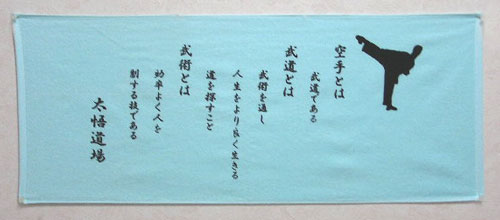 空手とは
武道である
武道とは
武術を通し
人生をより良く生きる
道を探すこと
武術とは
効率よく人を
制する技である
太悟道場